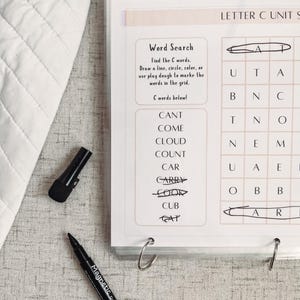 LETTER C UNIT S
Word Search
Find the C words.
Draw a line, circle, color, or
use play dough to marke the
words in the grid.
C words below!
CANT
COME
CLOUD
COUNT
CAR
CARRY
COOK
CUB
CAT
A
U T A
B N C
T N O
N E M
U A E
O B B
A R